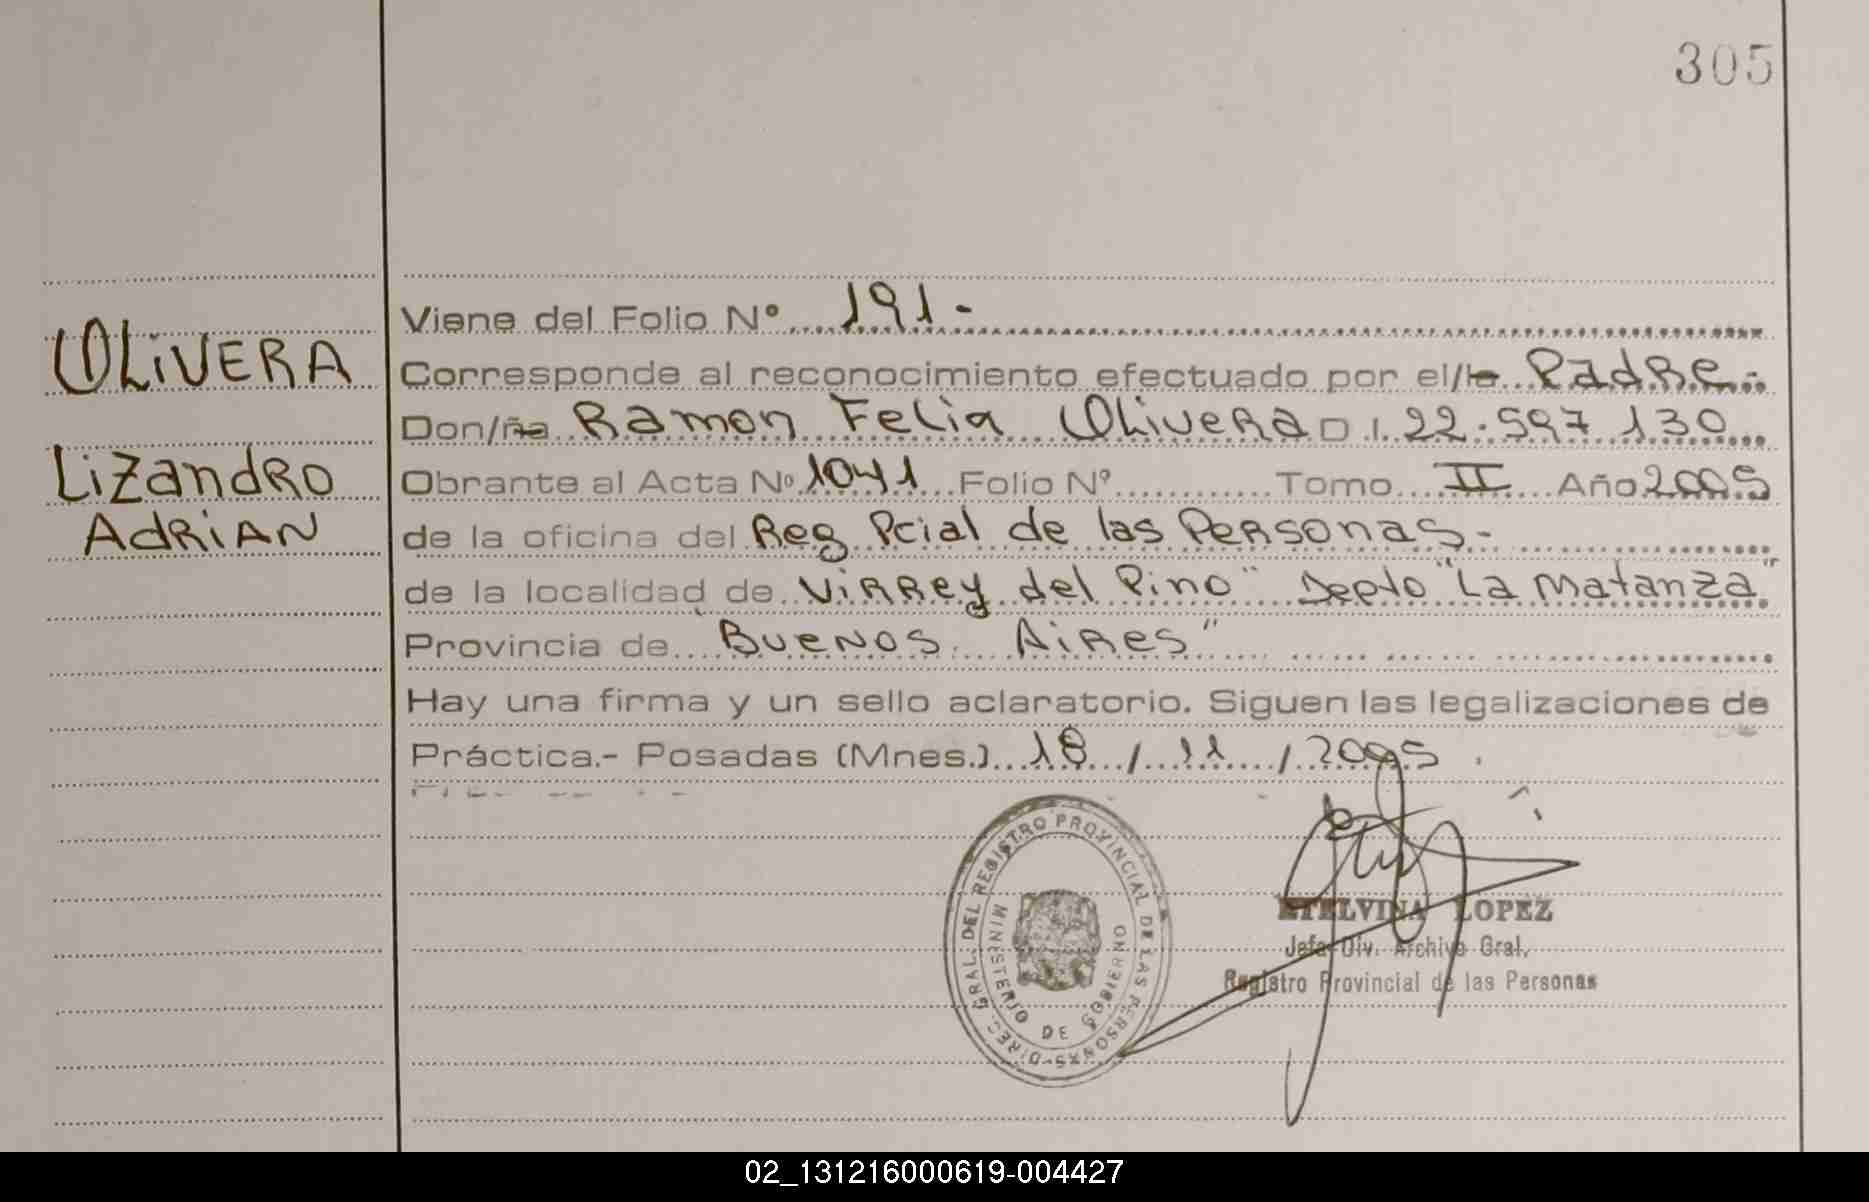 305
Viene del Folio Nº 191-
OLiVERA
Corresponde al reconocimiento efectuado por el/la Padre.-
Don/ña Ramon Felix OliveRa D.I. 22.597.130
LiZandRo
Obrante al Acta Nº 1041 Folio Nº Tomo II Año 2005
AdRiAN
de la oficina del Reg Pcial de las Personas.-
de la localidad de "ViRRey del Pino" Depto "La Matanza"
Provincia de "Buenos Aires"
Hay una firma y un sello aclaratorio. Siguen las legalizaciones de
Práctica.- Posadas (Mnes.) 18 / 11 / 2005
DIREC. GRAL. DEL REGISTRO PROVINCIAL DE LAS PERSONAS-
MINISTERIO DE GOBIERNO
ETELVINA LOPEZ
Jefa Div. Archivo Gral.
Registro Provincial de las Personas
02_131216000619-004427